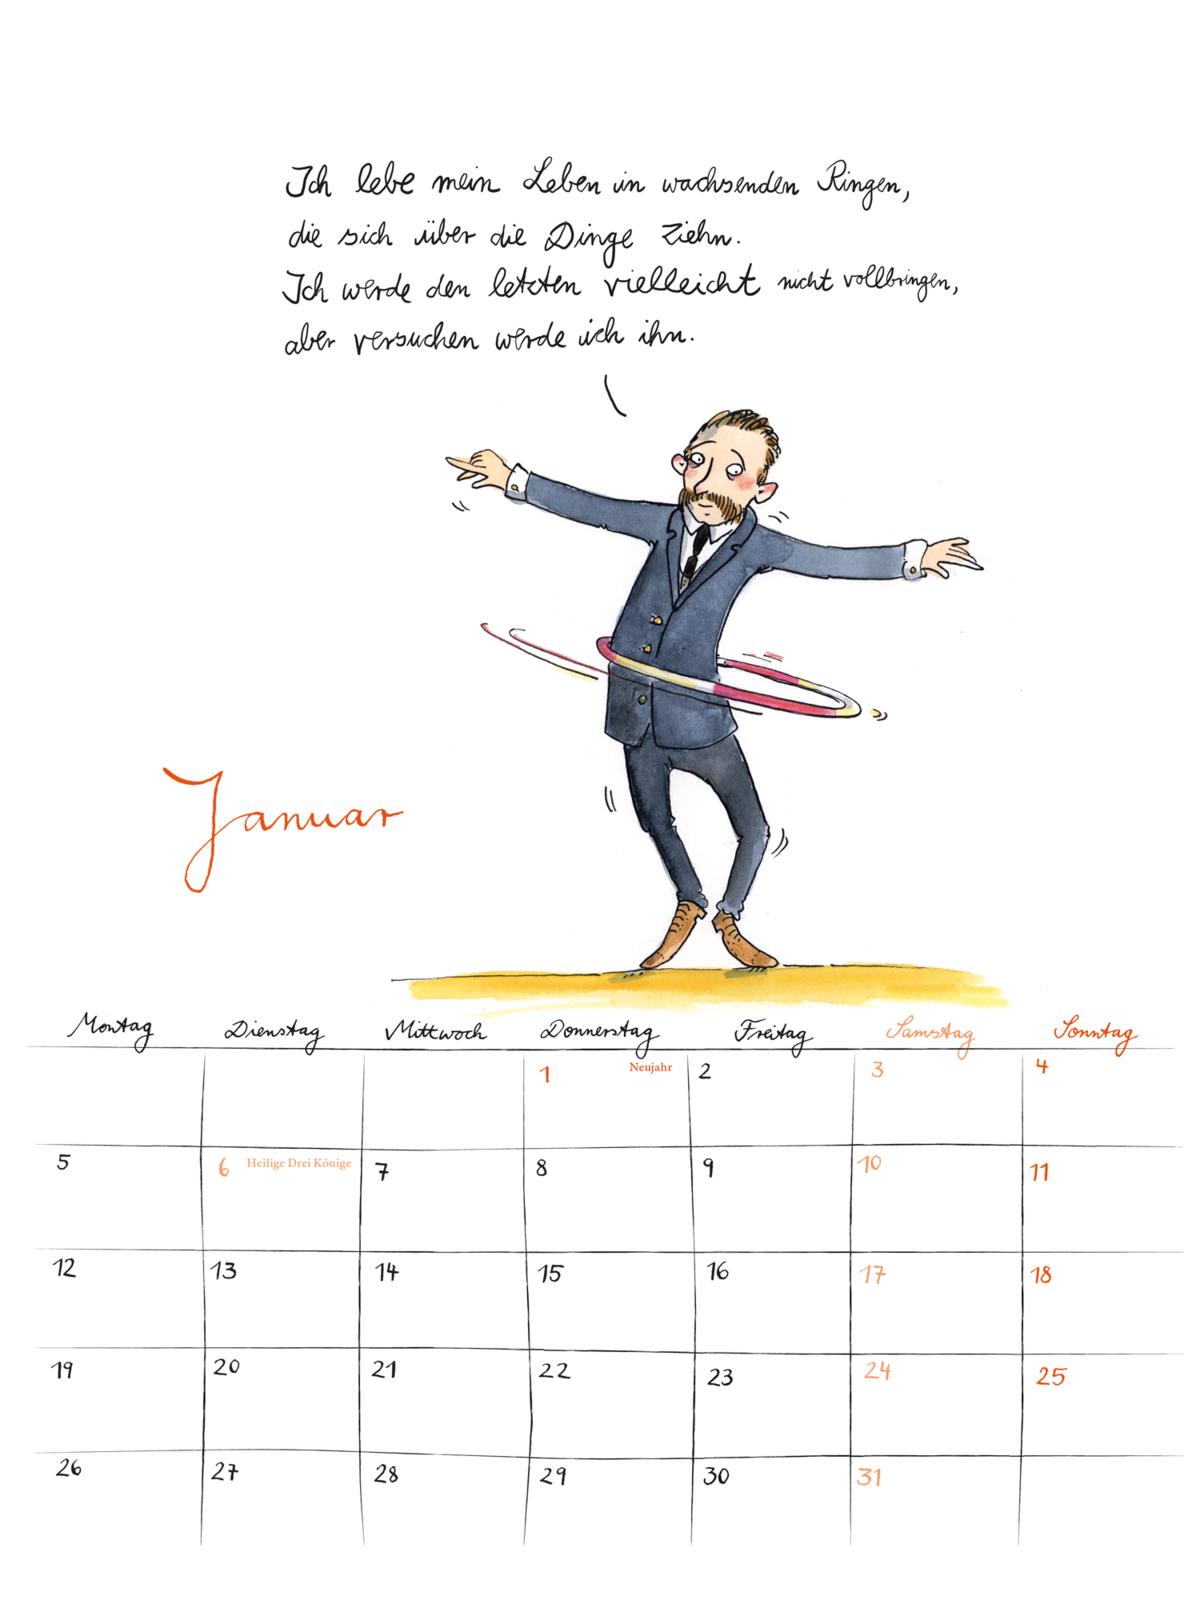 Ich lebe mein Leben in wachsenden Ringen,
die sich über die Dinge ziehn.
Ich werde den letzten vielleicht nicht vollbringen,
aber versuchen werde ich ihn.
Januar
Montag Dienstag Mittwoch Donnerstag Freitag Samstag Sonntag
1 Neujahr 2 3 4
5 6 Heilige Drei Könige 7 8 9 10 11
12 13 14 15 16 17 18
19 20 21 22 23 24 25
26 27 28 29 30 31